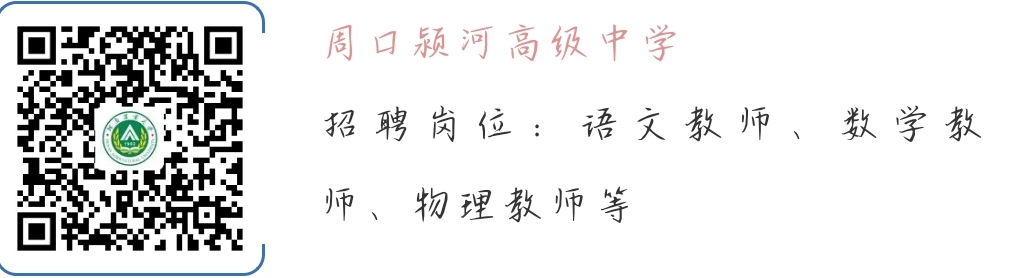 周口颍河高级中学
招聘岗位：语文教师、数学教
师、物理教师等